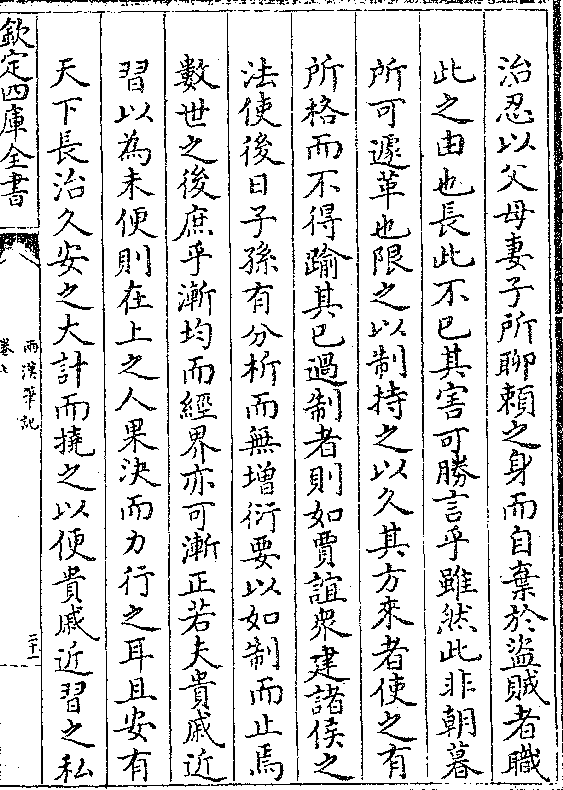 治忍以父母妻子所聊賴之身而自棄於盜賊者職
此之由也長此不已其害可勝言乎雖然此非朝暮
所可遽革也限之以制持之以久其方來者使之有
所格而不得踰其已過制者則如賈誼衆建諸侯之
法使後日子孫有分析而無增衍要以如制而止焉
數世之後庶乎漸均而經界亦可漸正若夫貴戚近
習以為未便則在上之人果決而力行之耳且安有
天下長治久安之大計而撓之以便貴戚近習之私
欽定四庫全書
兩漢筆記
卷
二十一